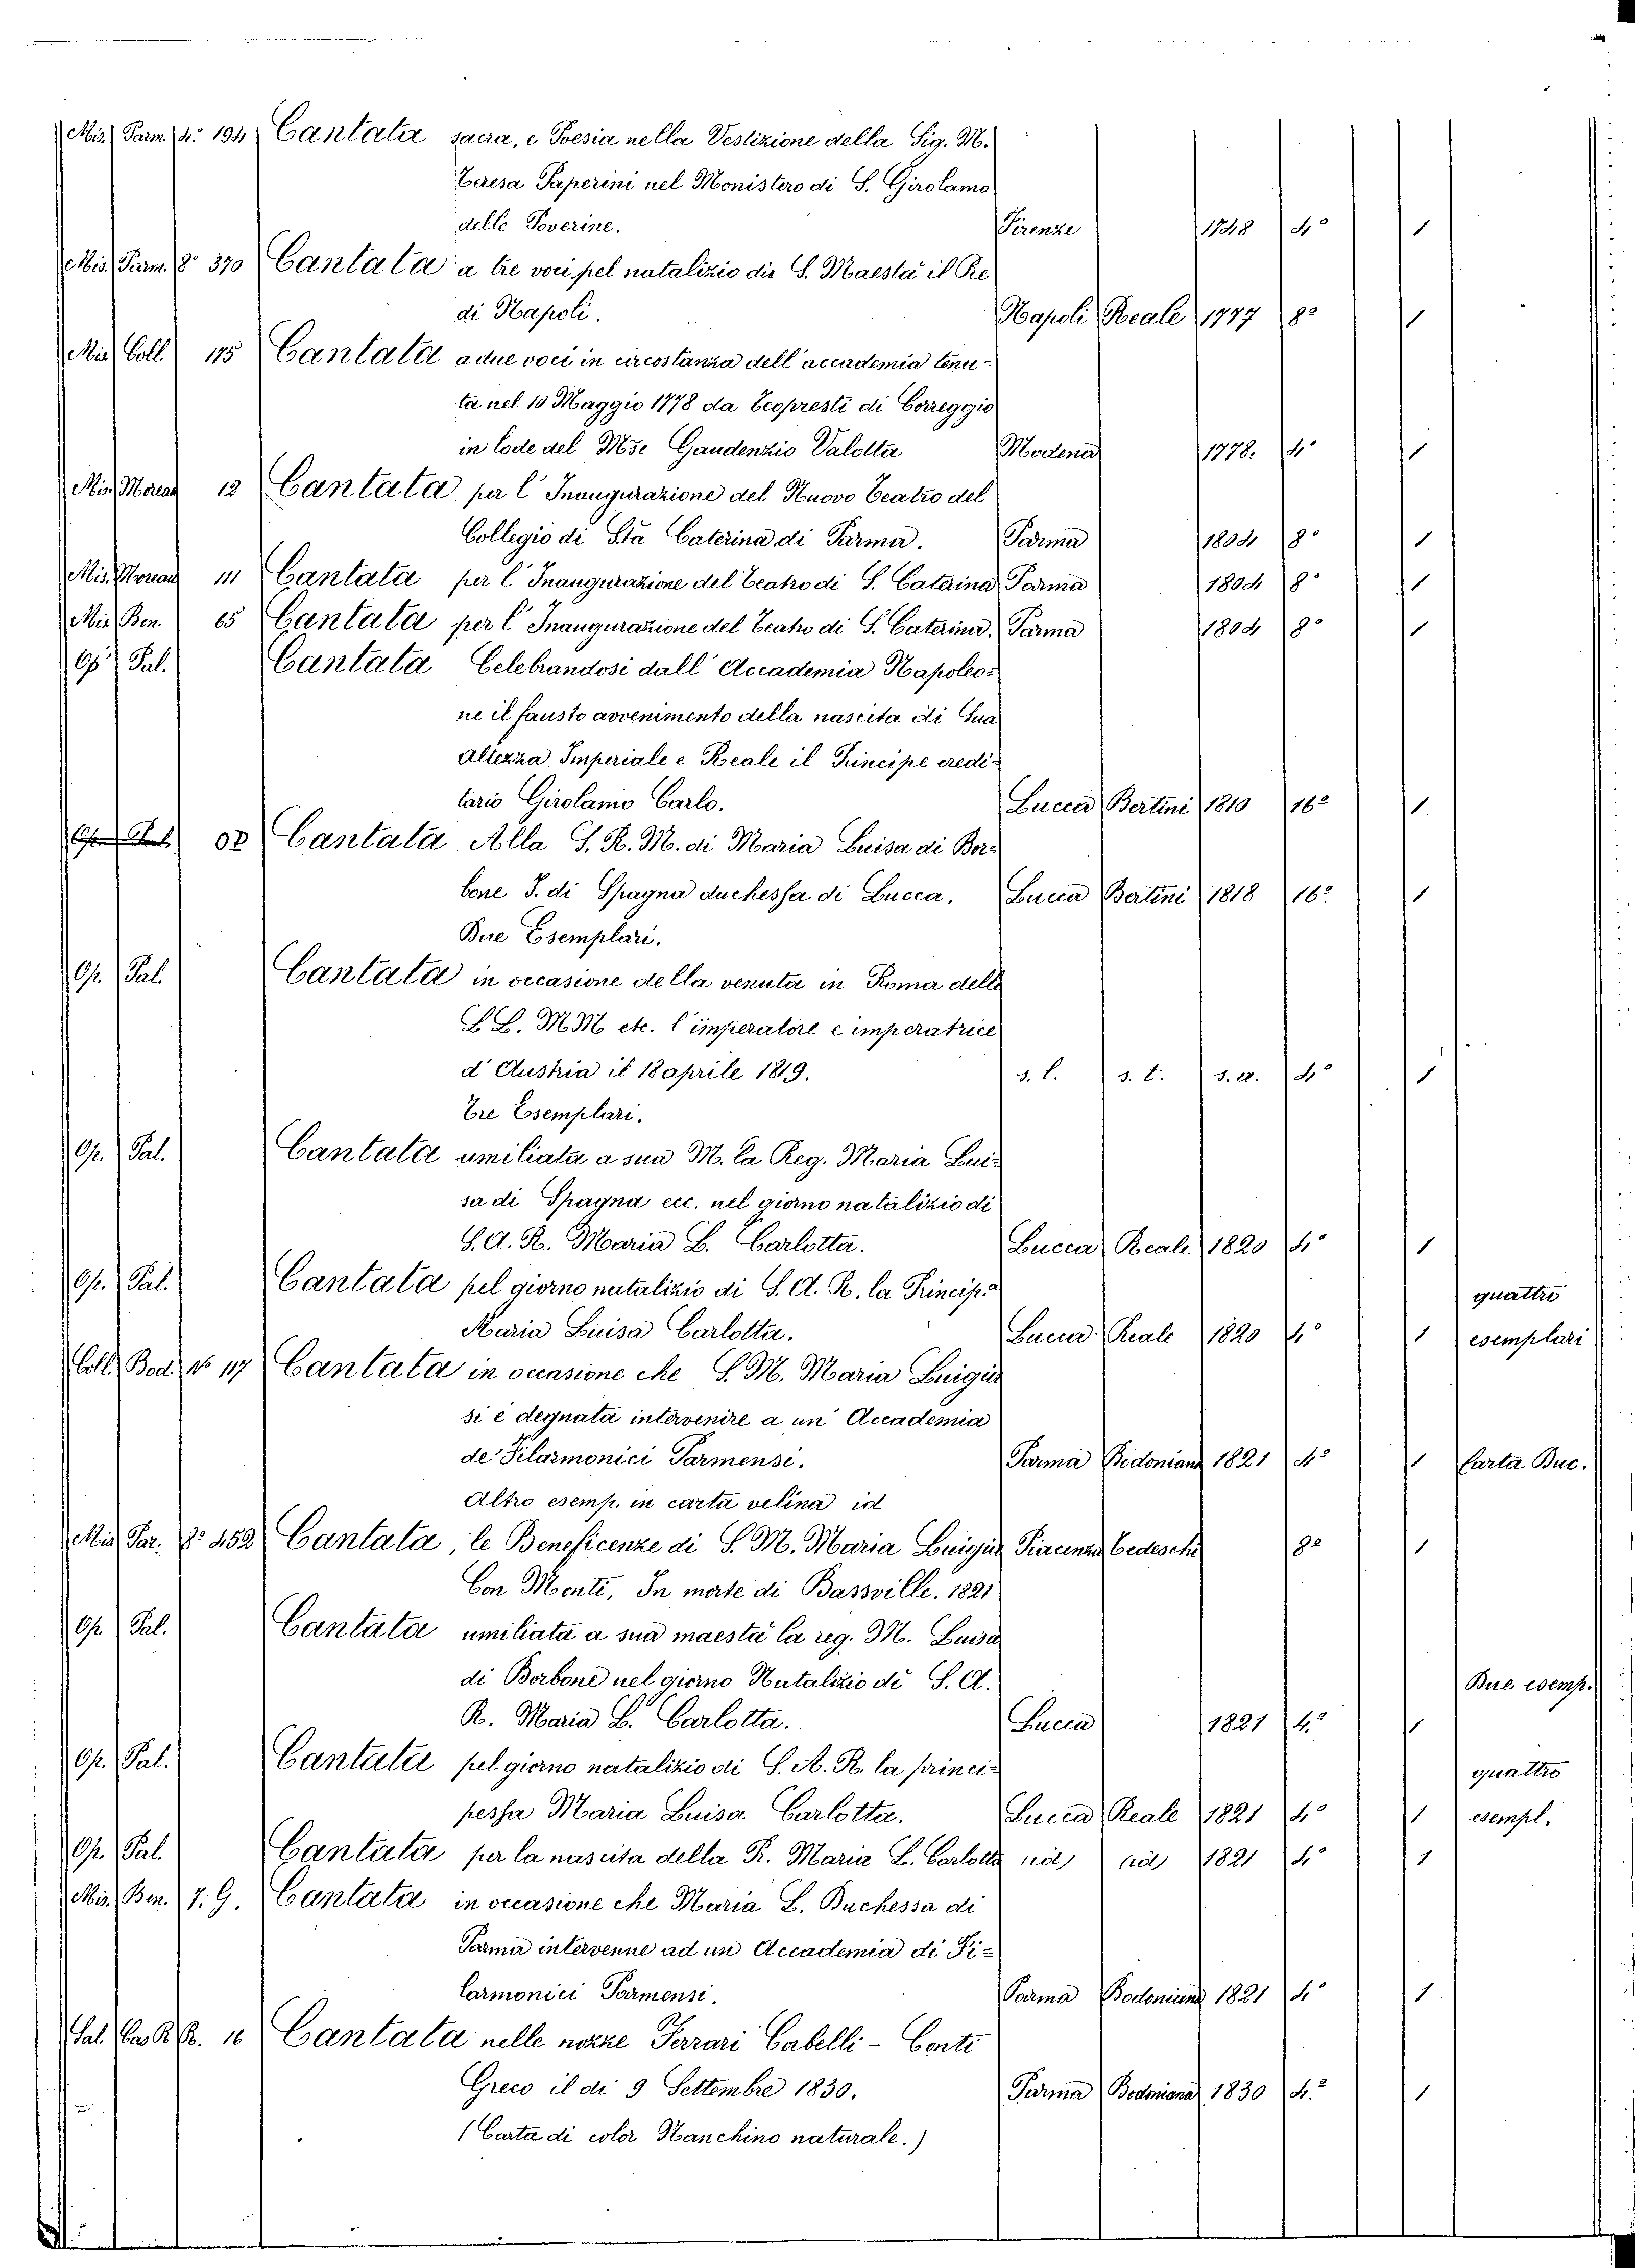 Mis. Parm. 4.º 194 Cantata sacra, e Poesia nella Vestizione della Sig. M.
Teresa Paperini nel Monistero di S. Girolamo
delle Poverine. Firenze 1748 4º 1
Mis. Parm. 8º 370 Cantata a tre voci pel natalizio die S. Maestà il Re
di Napoli. Napoli Reale 1777 8º 1
Mis. Coll. 175 Cantata a due voci in circostanza dell'accademia tenu-
ta nel 10 Maggio 1778 da Teopresti di Correggio
in lode del Mse Gaudenzio Valotta Modena 1778. 4º 1
Mis. Moreau 12 Cantata per l'Inaugurazione del Nuovo Teatro del
Collegio di Sta Caterina di Parma. Parma 1804 8º 1
Mis. Moreau 111 Cantata per l'Inaugurazione del Teatro di S. Caterina Parma 1804 8º 1
Mis. Ben. 65 Cantata per l'Inaugurazione del Teatro di S. Caterina. Parma 1804 8º 1
Op. Pal. Cantata Celebrandosi dall'Accademia Napoleo-
ne il fausto avvenimento della nascita di Sua
Altezza Imperiale e Reale il Principe eredi-
tario Girolamo Carlo. Lucca Bertini 1810 16º 1
Cantata Alla S. R. M. di Maria Luisa di Bor-
bone I. di Spagna duchessa di Lucca. Lucca Bertini 1818 16º 1
Due Esemplari.
Op. Pal. Cantata in occasione della venuta in Roma delle
L L. M M etc. l'imperatore e imperatrice
d'Austria il 18 aprile 1819. s. l. s. t. s. a. 4º 1
Tre Esemplari.
Op. Pal. Cantata umiliata a sua M. la Reg. Maria Lui-
sa di Spagna ecc. nel giorno natalizio di
S. A. R. Maria L. Carlotta. Lucca Reale 1820 4º 1
Op. Pal. Cantata pel giorno natalizio di S. A. R. la Princip.a quattro
Maria Luisa Carlotta. Lucca Reale 1820 4º 1 esemplari
Coll. Bod. Nº 117 Cantata in occasione che S. M. Maria Luigia
si è degnata intervenire a un'Accademia
de' Filarmonici Parmensi. Parma Bodoniana 1821 4º 1 Carta Duc.
Altro esemp. in carta velina id.
Mis. Par. 8º 452 Cantata, le Beneficenze di S. M. Maria Luigia Piacenza Tedeschi 8º 1
Con Monti, In morte di Bassville. 1821
Op. Pal. Cantata umiliata a sua maestà la reg. M. Luisa
di Borbone nel giorno Natalizio di S. A. Due esemp.
R. Maria L. Carlotta. Lucca 1821 4.º 1
Op. Pal. Cantata pel giorno natalizio di S. A. R. la princi- quattro
pessa Maria Luisa Carlotta. Lucca Reale 1821 4º 1 esempl.
Op. Pal. Cantata per la nascita della R. Maria L. Carlotta id id 1821 4º 1
Mis. Ben. 7. G. Cantata in occasione che Maria L. Duchessa di
Parma intervenne ad un'Accademia di Fi-
larmonici Parmensi. Parma Bodoniana 1821 4º 1
16 Cantata nelle nozze Ferrari Cabelli - Conti
Greco il di 9 Settembre 1830. Parma Bodoniana 1830 4.º 1
(Carta di color Nanchino naturale.)